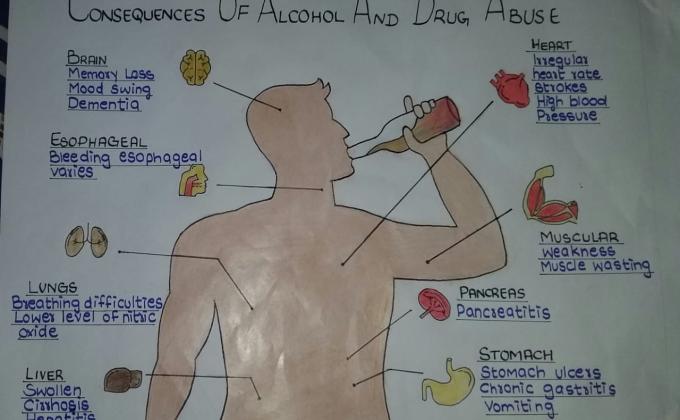 CONSEQUENCES OF ALCOHOL AND DRUG ABUSE
BRAIN
Memory Loss
Mood swing
Dementia
ESOPHAGEAL
Bleeding esophageal
varies
LUNGS
Breathing difficulties
Lower level of nitric
oxide
LIVER
Swollen
Cirrhosis
Hepatitis
HEART
Irregular
heart rate
Strokes
High blood
Pressure
MUSCULAR
weakness
Muscle wasting
PANCREAS
Pancreatitis
STOMACH
Stomach ulcers
Chronic gastritis
Vomiting